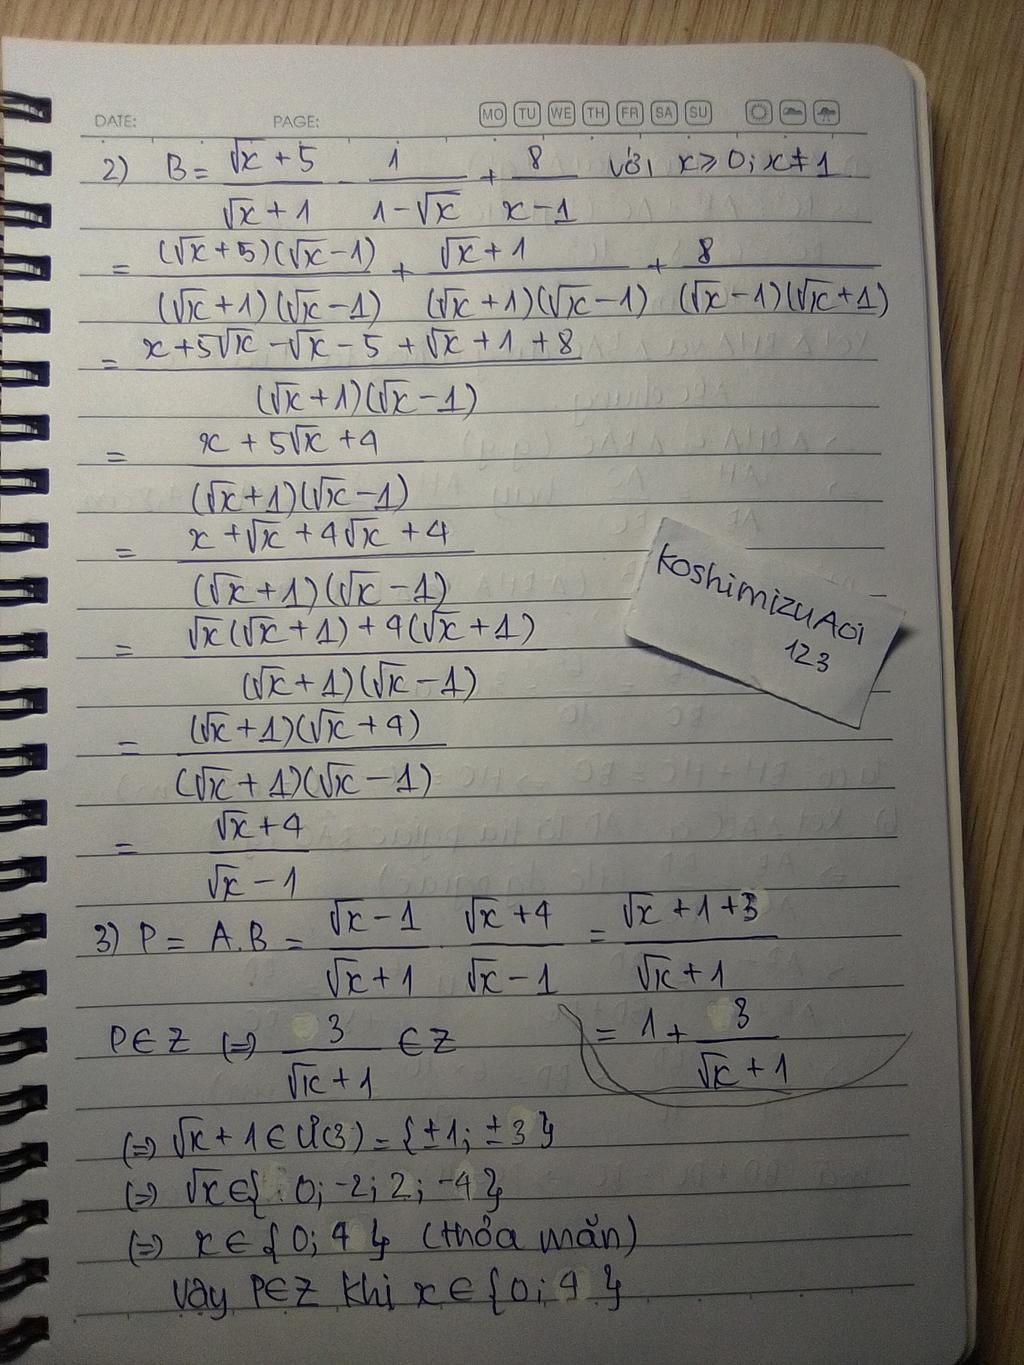 DATE: PAGE: MO TU WE TH FR SA SU
2) B = (√x + 5)/(√x + 1) - 1/(1 - √x) + 8/(x - 1) với x ≥ 0; x ≠ 1
= (√x + 5)(√x - 1)/(√x + 1)(√x - 1) + (√x + 1)/(√x + 1)(√x - 1) + 8/(√x - 1)(√x + 1)
= (x + 5√x - √x - 5 + √x + 1 + 8)/(√x + 1)(√x - 1)
= (x + 5√x + 4)/(√x + 1)(√x - 1)
= (x + √x + 4√x + 4)/(√x + 1)(√x - 1)
= (√x(√x + 1) + 4(√x + 1))/(√x + 1)(√x - 1)
= (√x + 1)(√x + 4)/(√x + 1)(√x - 1)
= (√x + 4)/(√x - 1)
koshimizuAoi
123
3) P = A.B = (√x - 1)/(√x + 1) . (√x + 4)/(√x - 1) = (√x + 1 + 3)/(√x + 1)
= 1 + 3/(√x + 1)
P∈Z (=) 3/(√x + 1) ∈ Z
(=) √x + 1 ∈ Ư(3) = {±1; ±3}
(=) √x ∈ {0; -2; 2; -4}
(=) x ∈ {0; 4} (thỏa mãn)
Vậy P∈Z khi x ∈ {0; 4}